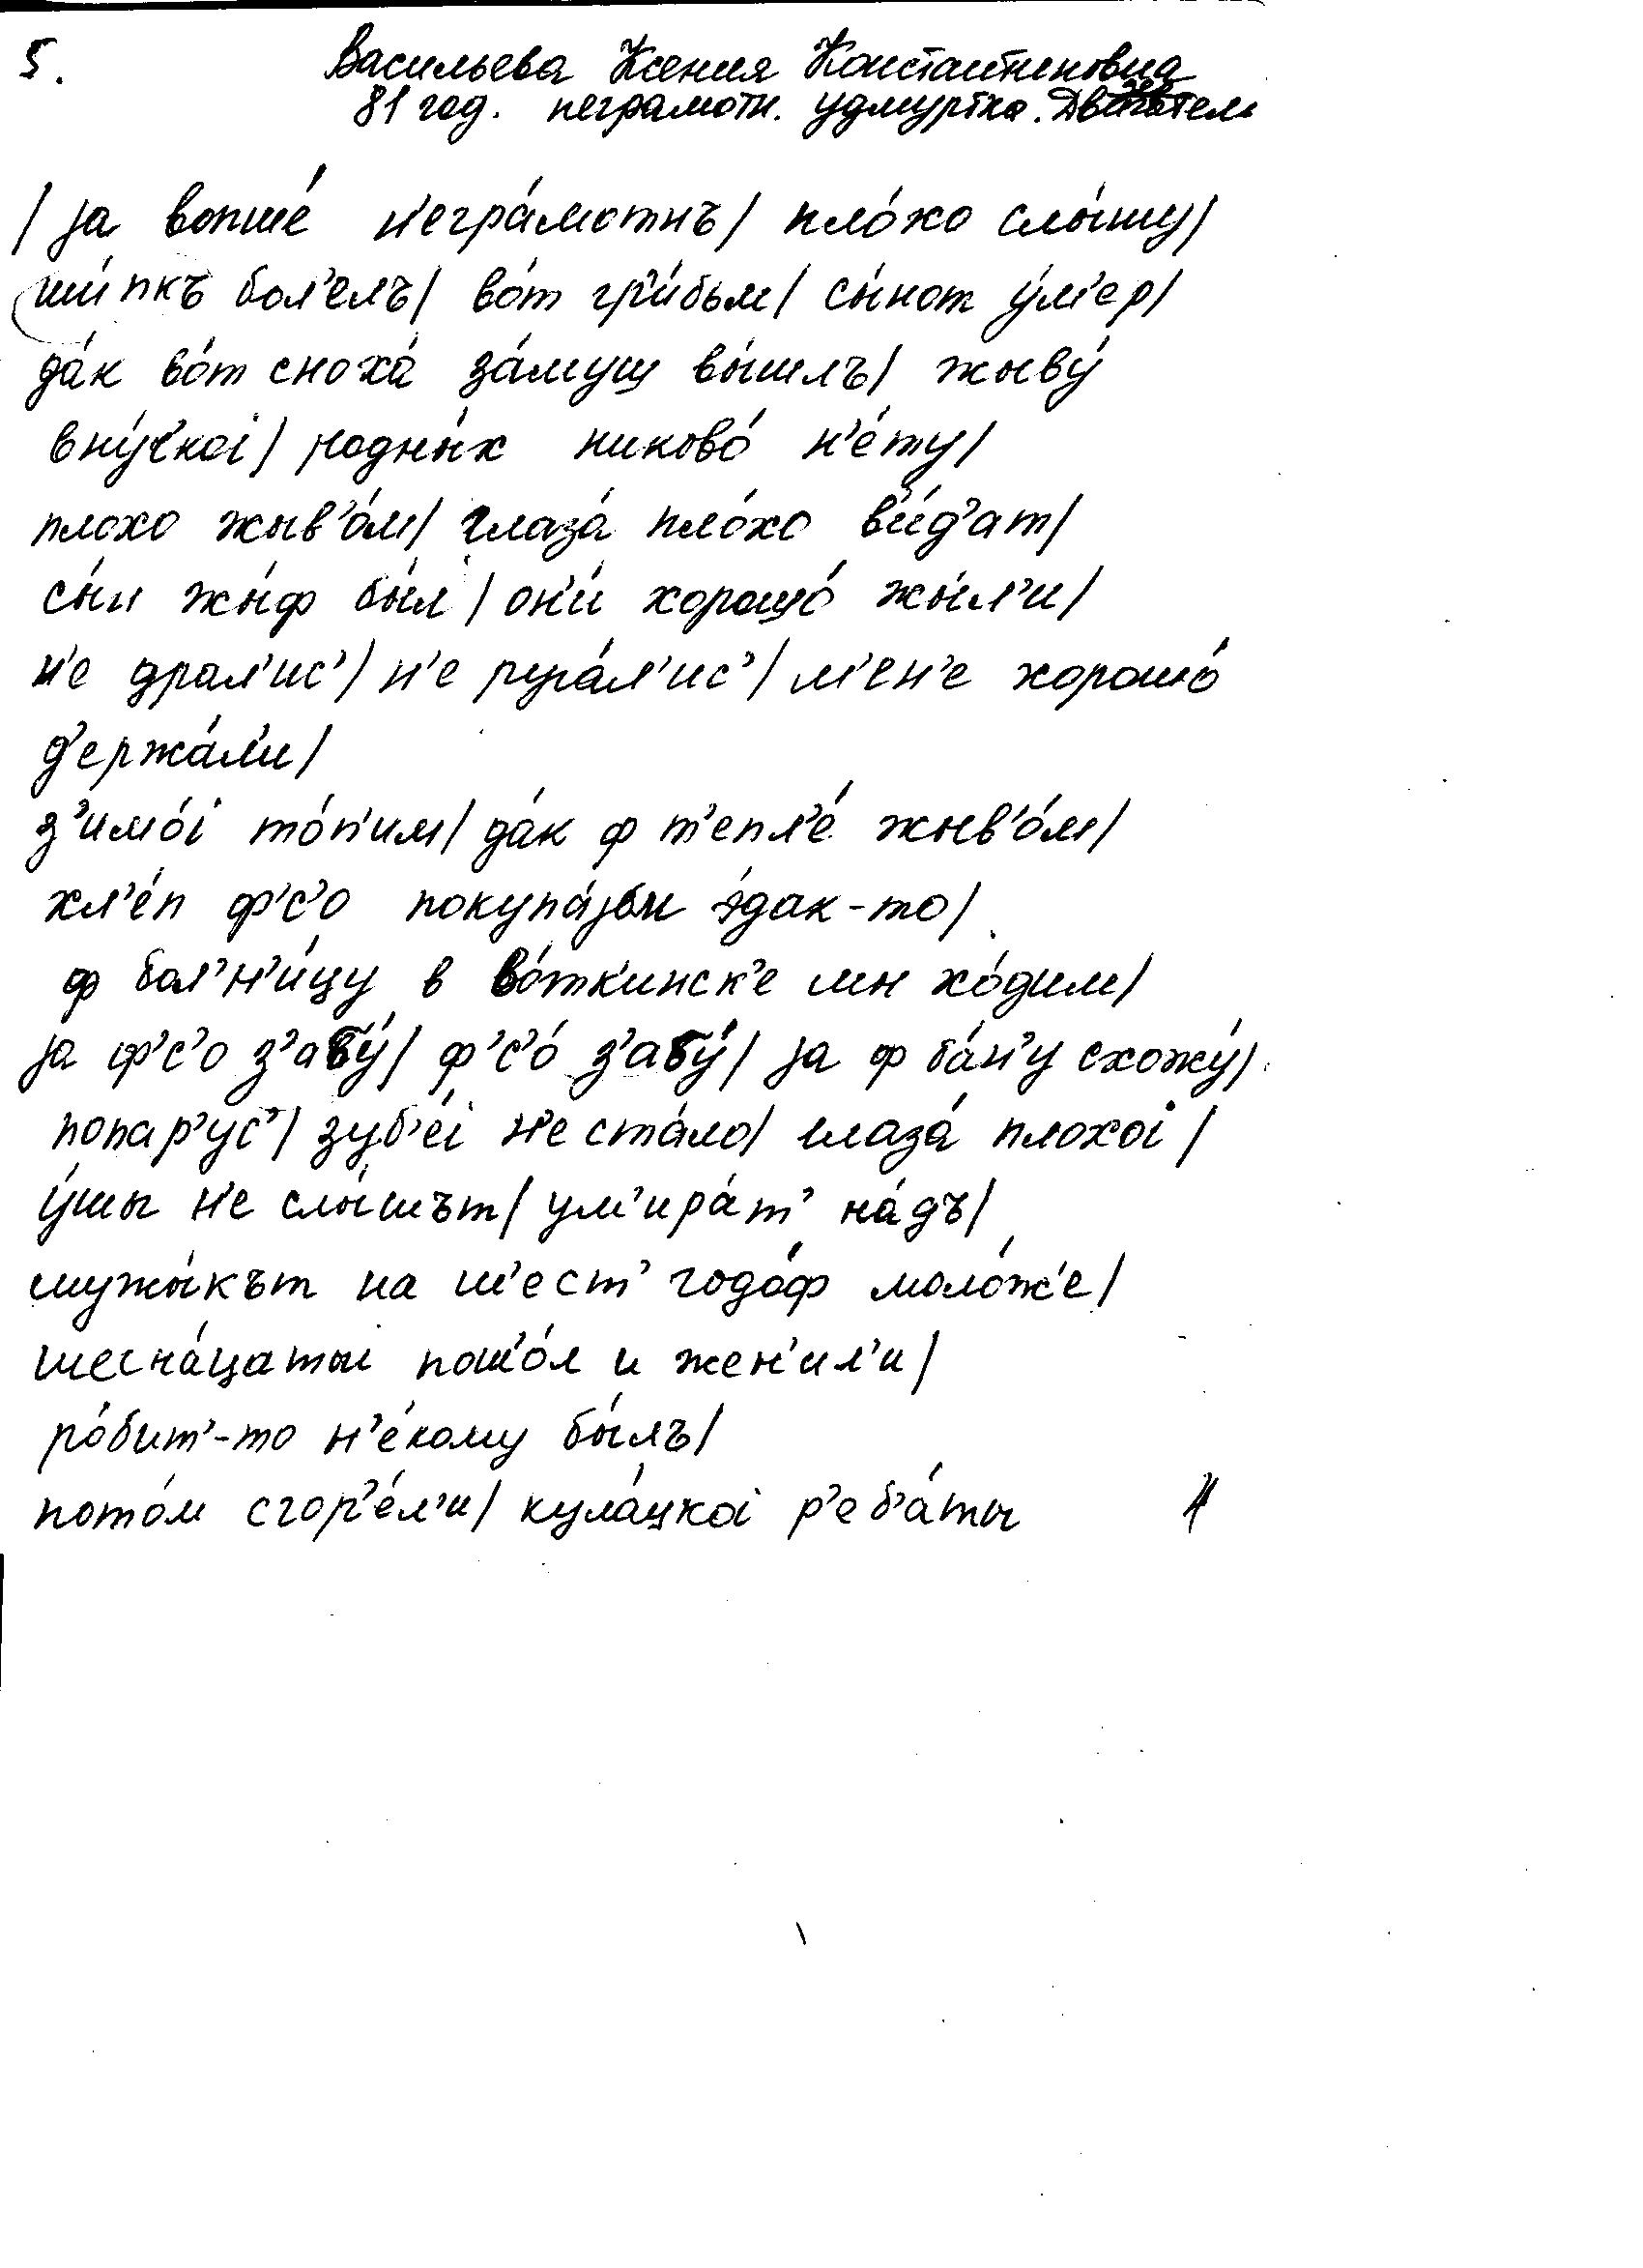 5. Васильева Ксения Константиновна
81 год. неграмотн. удмуртка.
| jа вопше́ н'егра́мотнъ| пло́хо слы́шу|
ши́пкъ бол'елъ| во́т гр'и́бым| сы́нот у́м'ер|
да́к во́т сноха́ за́муш вы́шлъ| жыву́
вну́ч'коi| родны́х никово́ н'е́ту|
плохо жыв'о́м| глаза́ пло́хо в'и́д'ат|
сы́н жы́ф бы́л| он'и́ хорошо́ жы́л'и|
н'е драл'ис'| н'е руга́л'ис'| м'ен'е хорошо́
д'ержа́л'и|
з'имо́i то́п'им| да́к ф т'епл'е́ жыв'о́м|
хл'е́п ф'с'о покупа́jьм э́дак-то|
ф бол'н'и́цу в во́тк'инск'е мы хо́дим|
jа ф'с'о з'абу́| ф'с'о́ з'абу́| jа ф ба́н'у схожу́|
попар'ус'| зуб'е́i н'е ста́ло| глаза́ плохоi|
у́шы н'е слы́шът| ум'ира́т' на́дъ|
мужы́кът на ш'ест' годо́ф моло́ж'е|
шесна́цатыi пош'о́л и жен'ил'и|
ро́бит'-то н'е́кому бы́лъ|
пото́м сгор'е́л'и| кула́цкоi р'еб'а́ты